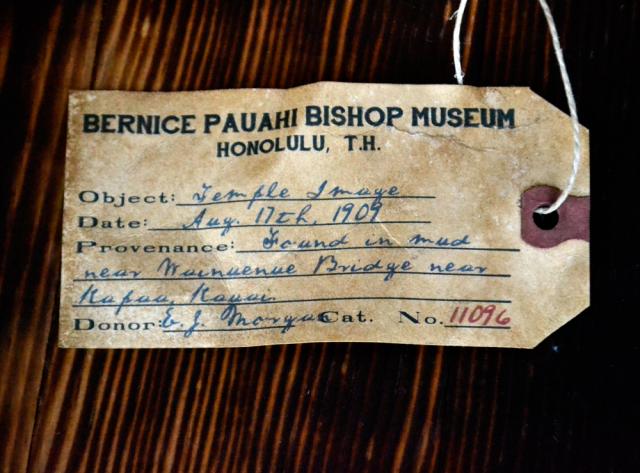 BERNICE PAUAHI BISHOP MUSEUM
HONOLULU, T.H.
Object: Temple Image
Date: Aug. 17th, 1909
Provenance: Found in mud
near Wainuenue Bridge near
Kapaa, Kauai.
Donor: E. J. Morgan Cat. No. 11096